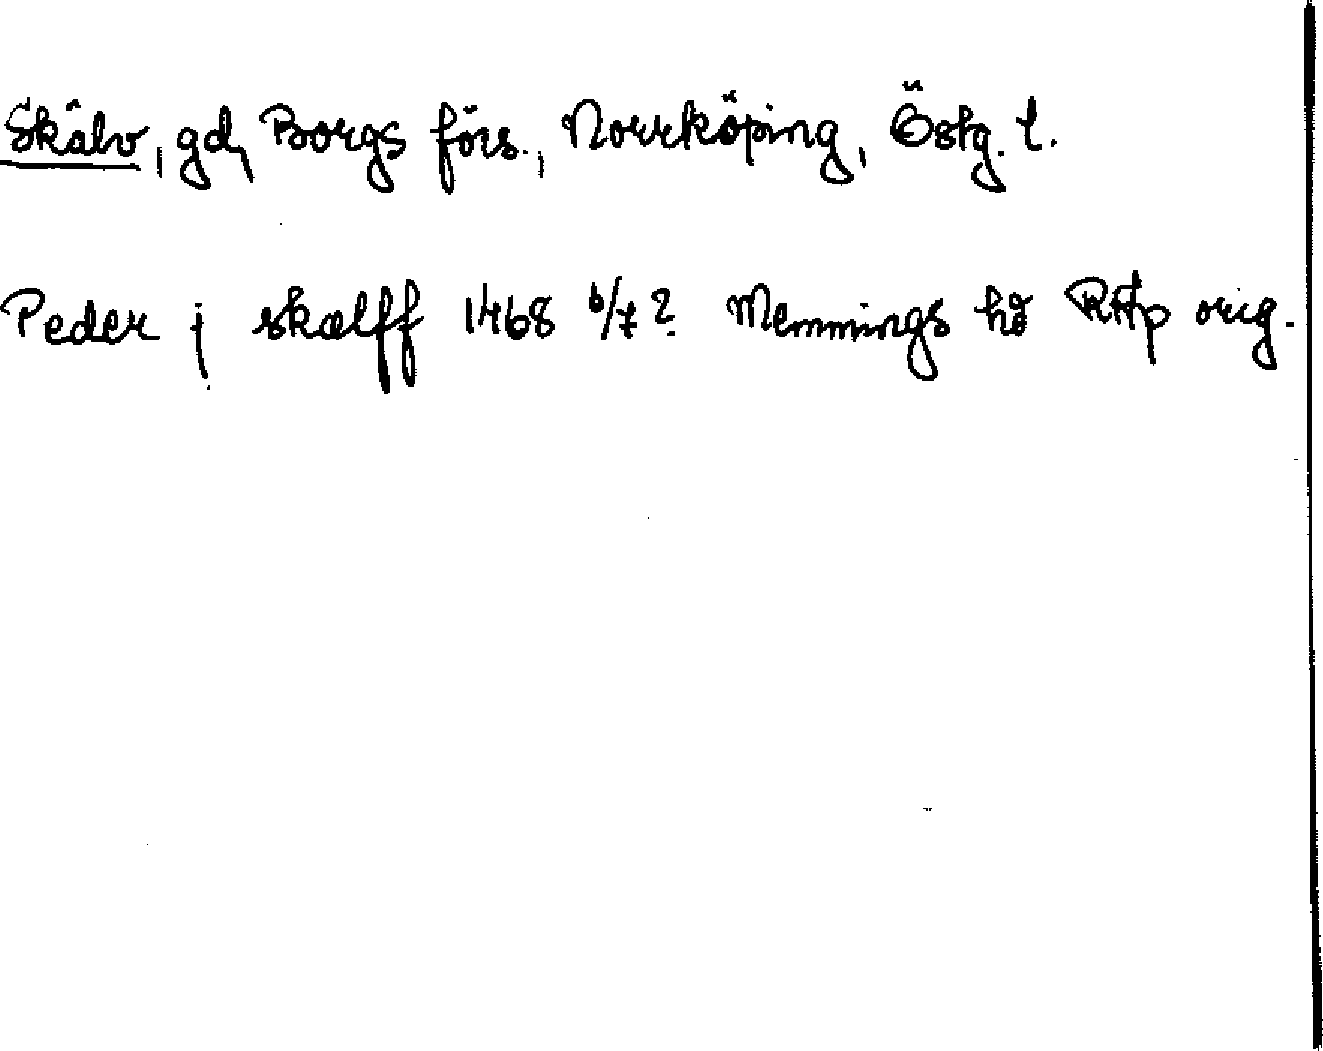 Skälv, gd, Borgs förs., Norrköping, Östg. l.
Peder j skælff 1468 6/7? Memmings hd RAp orig.